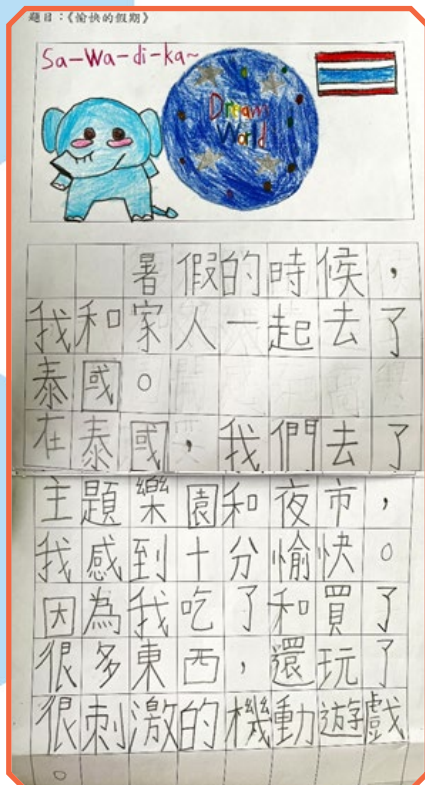 題目：《愉快的假期》
Sa-Wa-di-ka~
Dream
World
暑假的時候，
我和家人一起去了
泰國。
在泰國，我們去了
主題樂園和夜市，
我感到十分愉快。
因為我吃了和買了
很多東西，還玩了
很刺激的機動遊戲
。